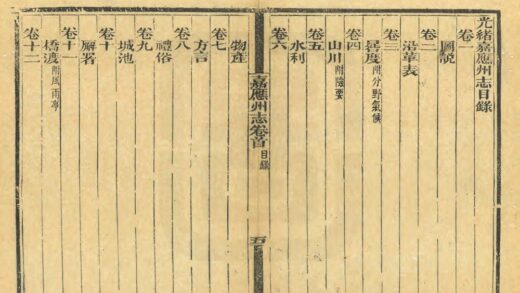 光緒嘉應州志目錄
卷一
圖說
卷二
沿革表
卷三
晷度附分野氣候
卷四
山川附險要
卷五
水利
卷六
嘉應州志卷首 目錄 五
物產
卷七
方言
卷八
禮俗
卷九
城池
卷十
廨署
卷十一
橋渡附風雨亭
卷十二